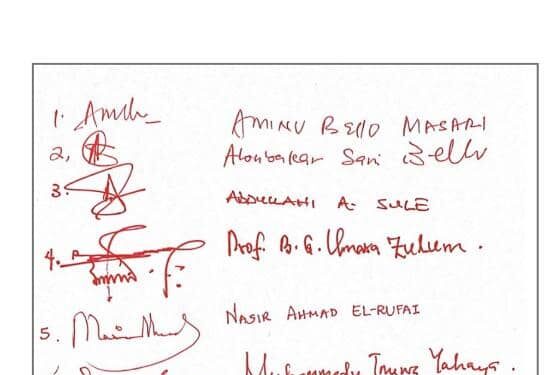 1. Amdh
AMINU BELLO MASARI
2, Abubakar Sani Bello
3. ABDULLAHI A. SULE
4. Prof. B. G. Umara Zulum.
5. NASIR AHMAD EL-RUFAI
Muhammadu Inuwa Yahaya.